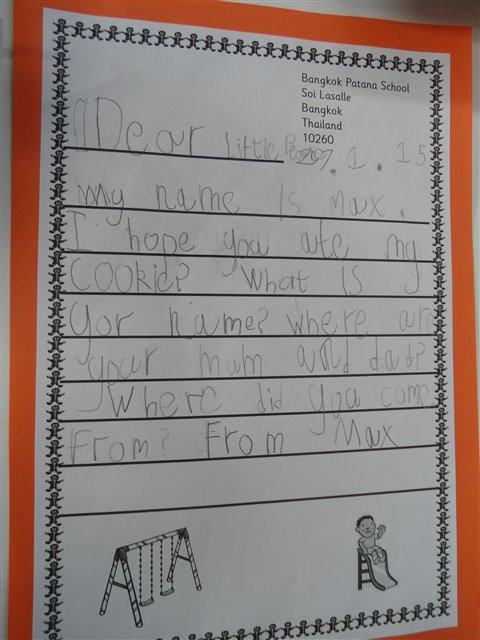 Bangkok Patana School
Soi Lasalle
Bangkok
Thailand
10260
Dear Little .1.15
My name is Max.
I hope you ate my
cookie? What is
yor name? where are
your mum and dad?
Where did you come
From? From Max